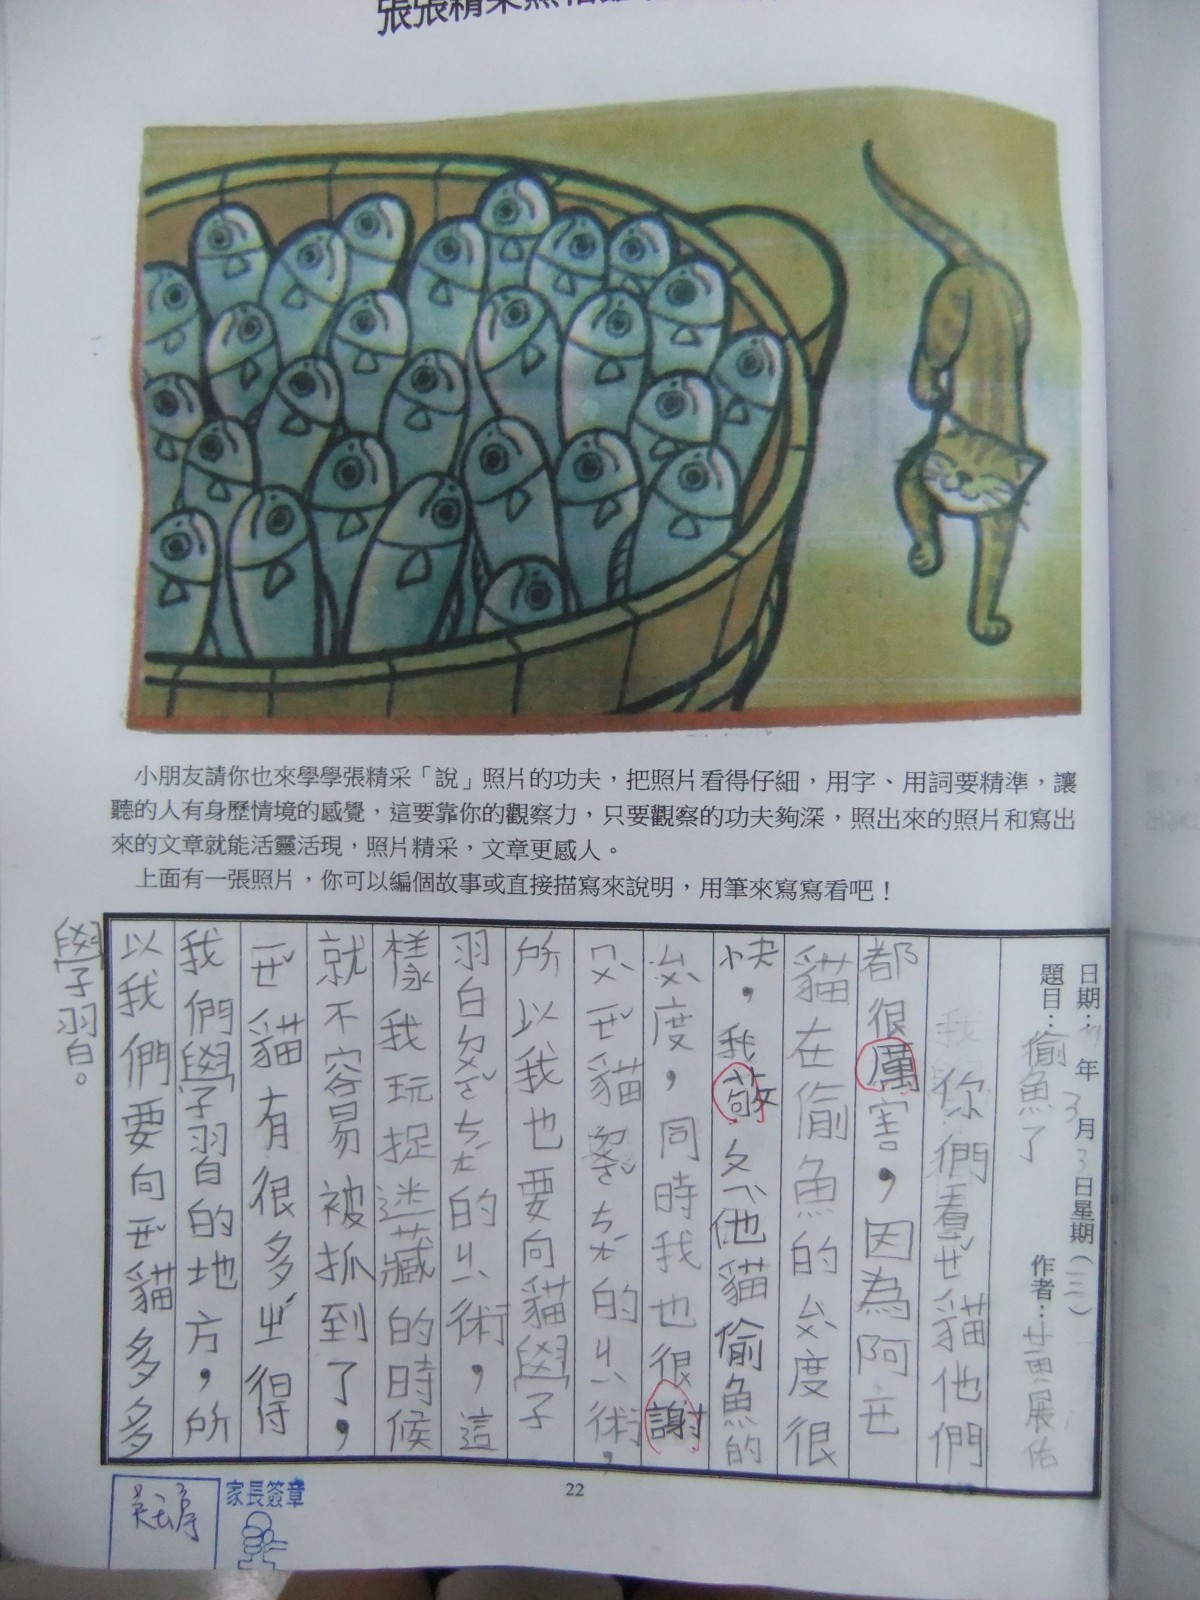 張張精采
小朋友請你也來學學張精采「說」照片的功夫，把照片看得仔細，用字、用詞要精準，讓
聽的人有身歷情境的感覺，這要靠你的觀察力，只要觀察的功夫夠深，照出來的照片和寫出
來的文章就能活靈活現，照片精采，文章更感人。
上面有一張照片，你可以編個故事或直接描寫來說明，用筆來寫寫看吧！
日期：年3月3日星期（三）
題目：偷魚了 作者：黃展佑
你們看ㄝˇ貓他們
都很厲害，因為阿ㄝ
貓在偷魚的ㄙㄨˋ度很
快，我敬ㄆㄟˋ他貓偷魚的
ㄙㄨˋ度，同時我也很謝
ㄝ貓的ㄐㄧˋ術，
所以我也要向貓學
習的ㄐㄧˋ術，這
樣我玩捉迷藏的時候
就不容易被抓到了，
ㄝˇ貓有很多ㄓˊ得
我們學習的地方，所
以我們要向ㄝˇ貓多多
學習。
22
家長簽章